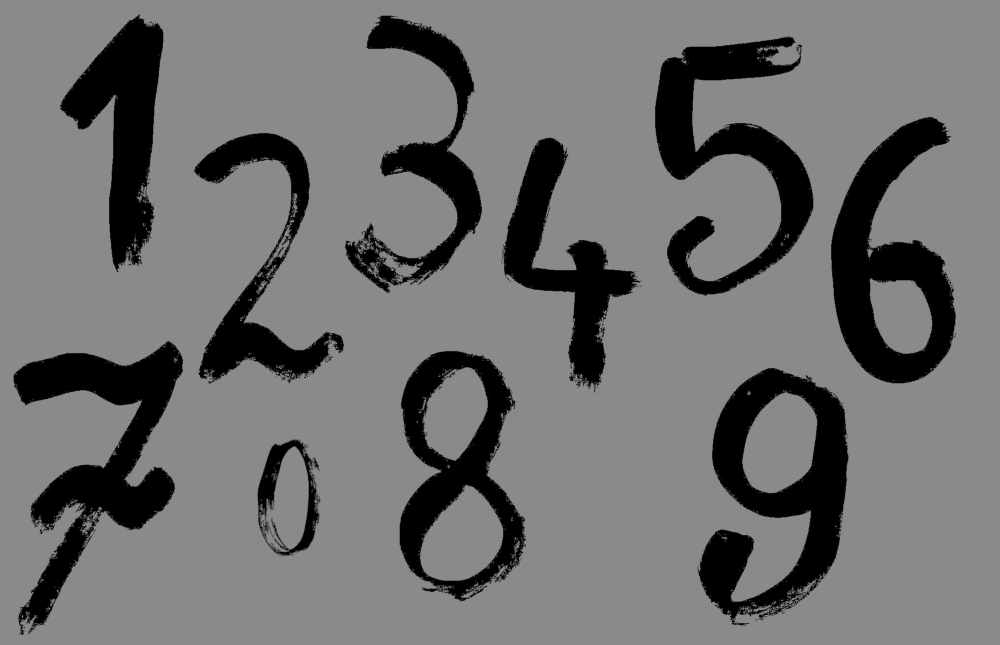 1 2 3 4 5 6
7 0 8 9